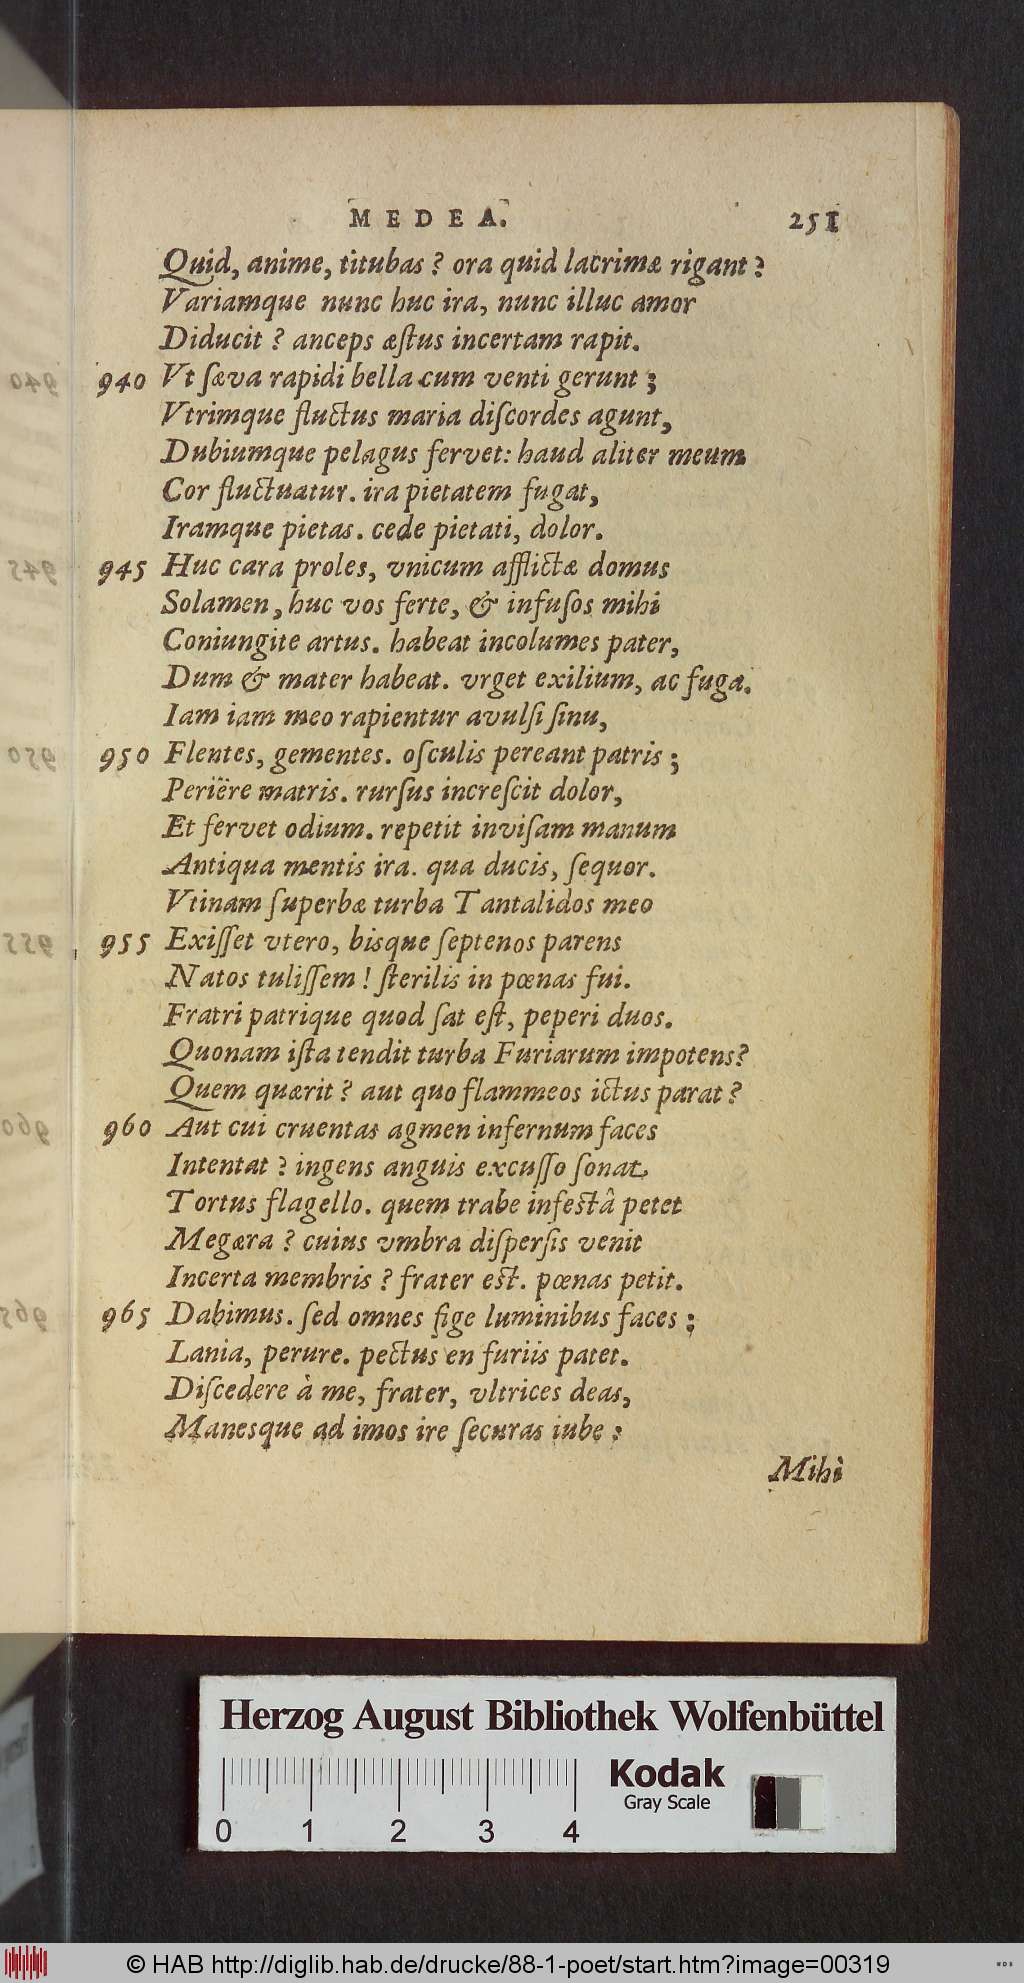 MEDEA. 251
Quid, anime, titubas? ora quid lacrimæ rigant?
Variamque nunc huc ira, nunc illuc amor
Diducit? anceps æſtus incertam rapit.
940 Vt ſæva rapidi bella cum venti gerunt;
Vtrimque fluctus maria diſcordes agunt,
Dubiumque pelagus fervet: haud aliter meum
Cor fluctuatur. ira pietatem fugat,
Iramque pietas. cede pietati, dolor.
945 Huc cara proles, vnicum afflictæ domus
Solamen, huc vos ferte, & infuſos mihi
Coniungite artus. habeat incolumes pater,
Dum & mater habeat. vrget exilium, ac fuga.
Iam iam meo rapientur avulſi ſinu,
950 Flentes, gementes. oſculis pereant patris;
Periëre matris. rurſus increſcit dolor,
Et fervet odium. repetit inviſam manum
Antiqua mentis ira. qua ducis, ſequor.
Vtinam ſuperbæ turba Tantalidos meo
955 Exiſſet vtero, bisque ſeptenos parens
Natos tuliſſem! ſterilis in pœnas fui.
Fratri patrique quod ſat eſt, peperi duos.
Quonam iſta tendit turba Furiarum impotens?
Quem quærit? aut quo flammeos ictus parat?
960 Aut cui cruentas agmen infernum faces
Intentat? ingens anguis excuſſo ſonat
Tortus flagello. quem trabe infeſtâ petet
Megæra? cuius vmbra diſperſis venit
Incerta membris? frater eſt. pœnas petit.
965 Dabimus. ſed omnes fige luminibus faces;
Lania, perure. pectus en furiis patet.
Diſcedere à me, frater, vltrices deas,
Manesque ad imos ire ſecuras iube:
Mihi
Herzog August Bibliothek Wolfenbüttel
Kodak
Gray Scale
0 1 2 3 4
© HAB http://diglib.hab.de/drucke/88-1-poet/start.htm?image=00319